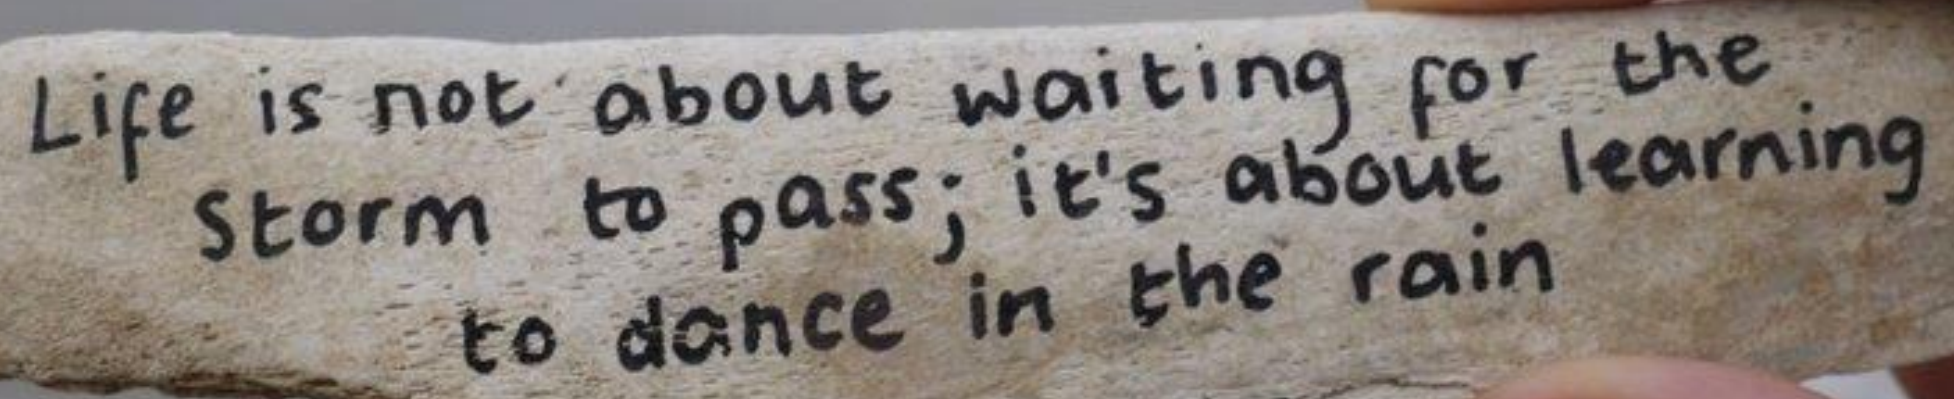 Life is not about waiting for the
Storm to pass; it's about learning
to dance in the rain